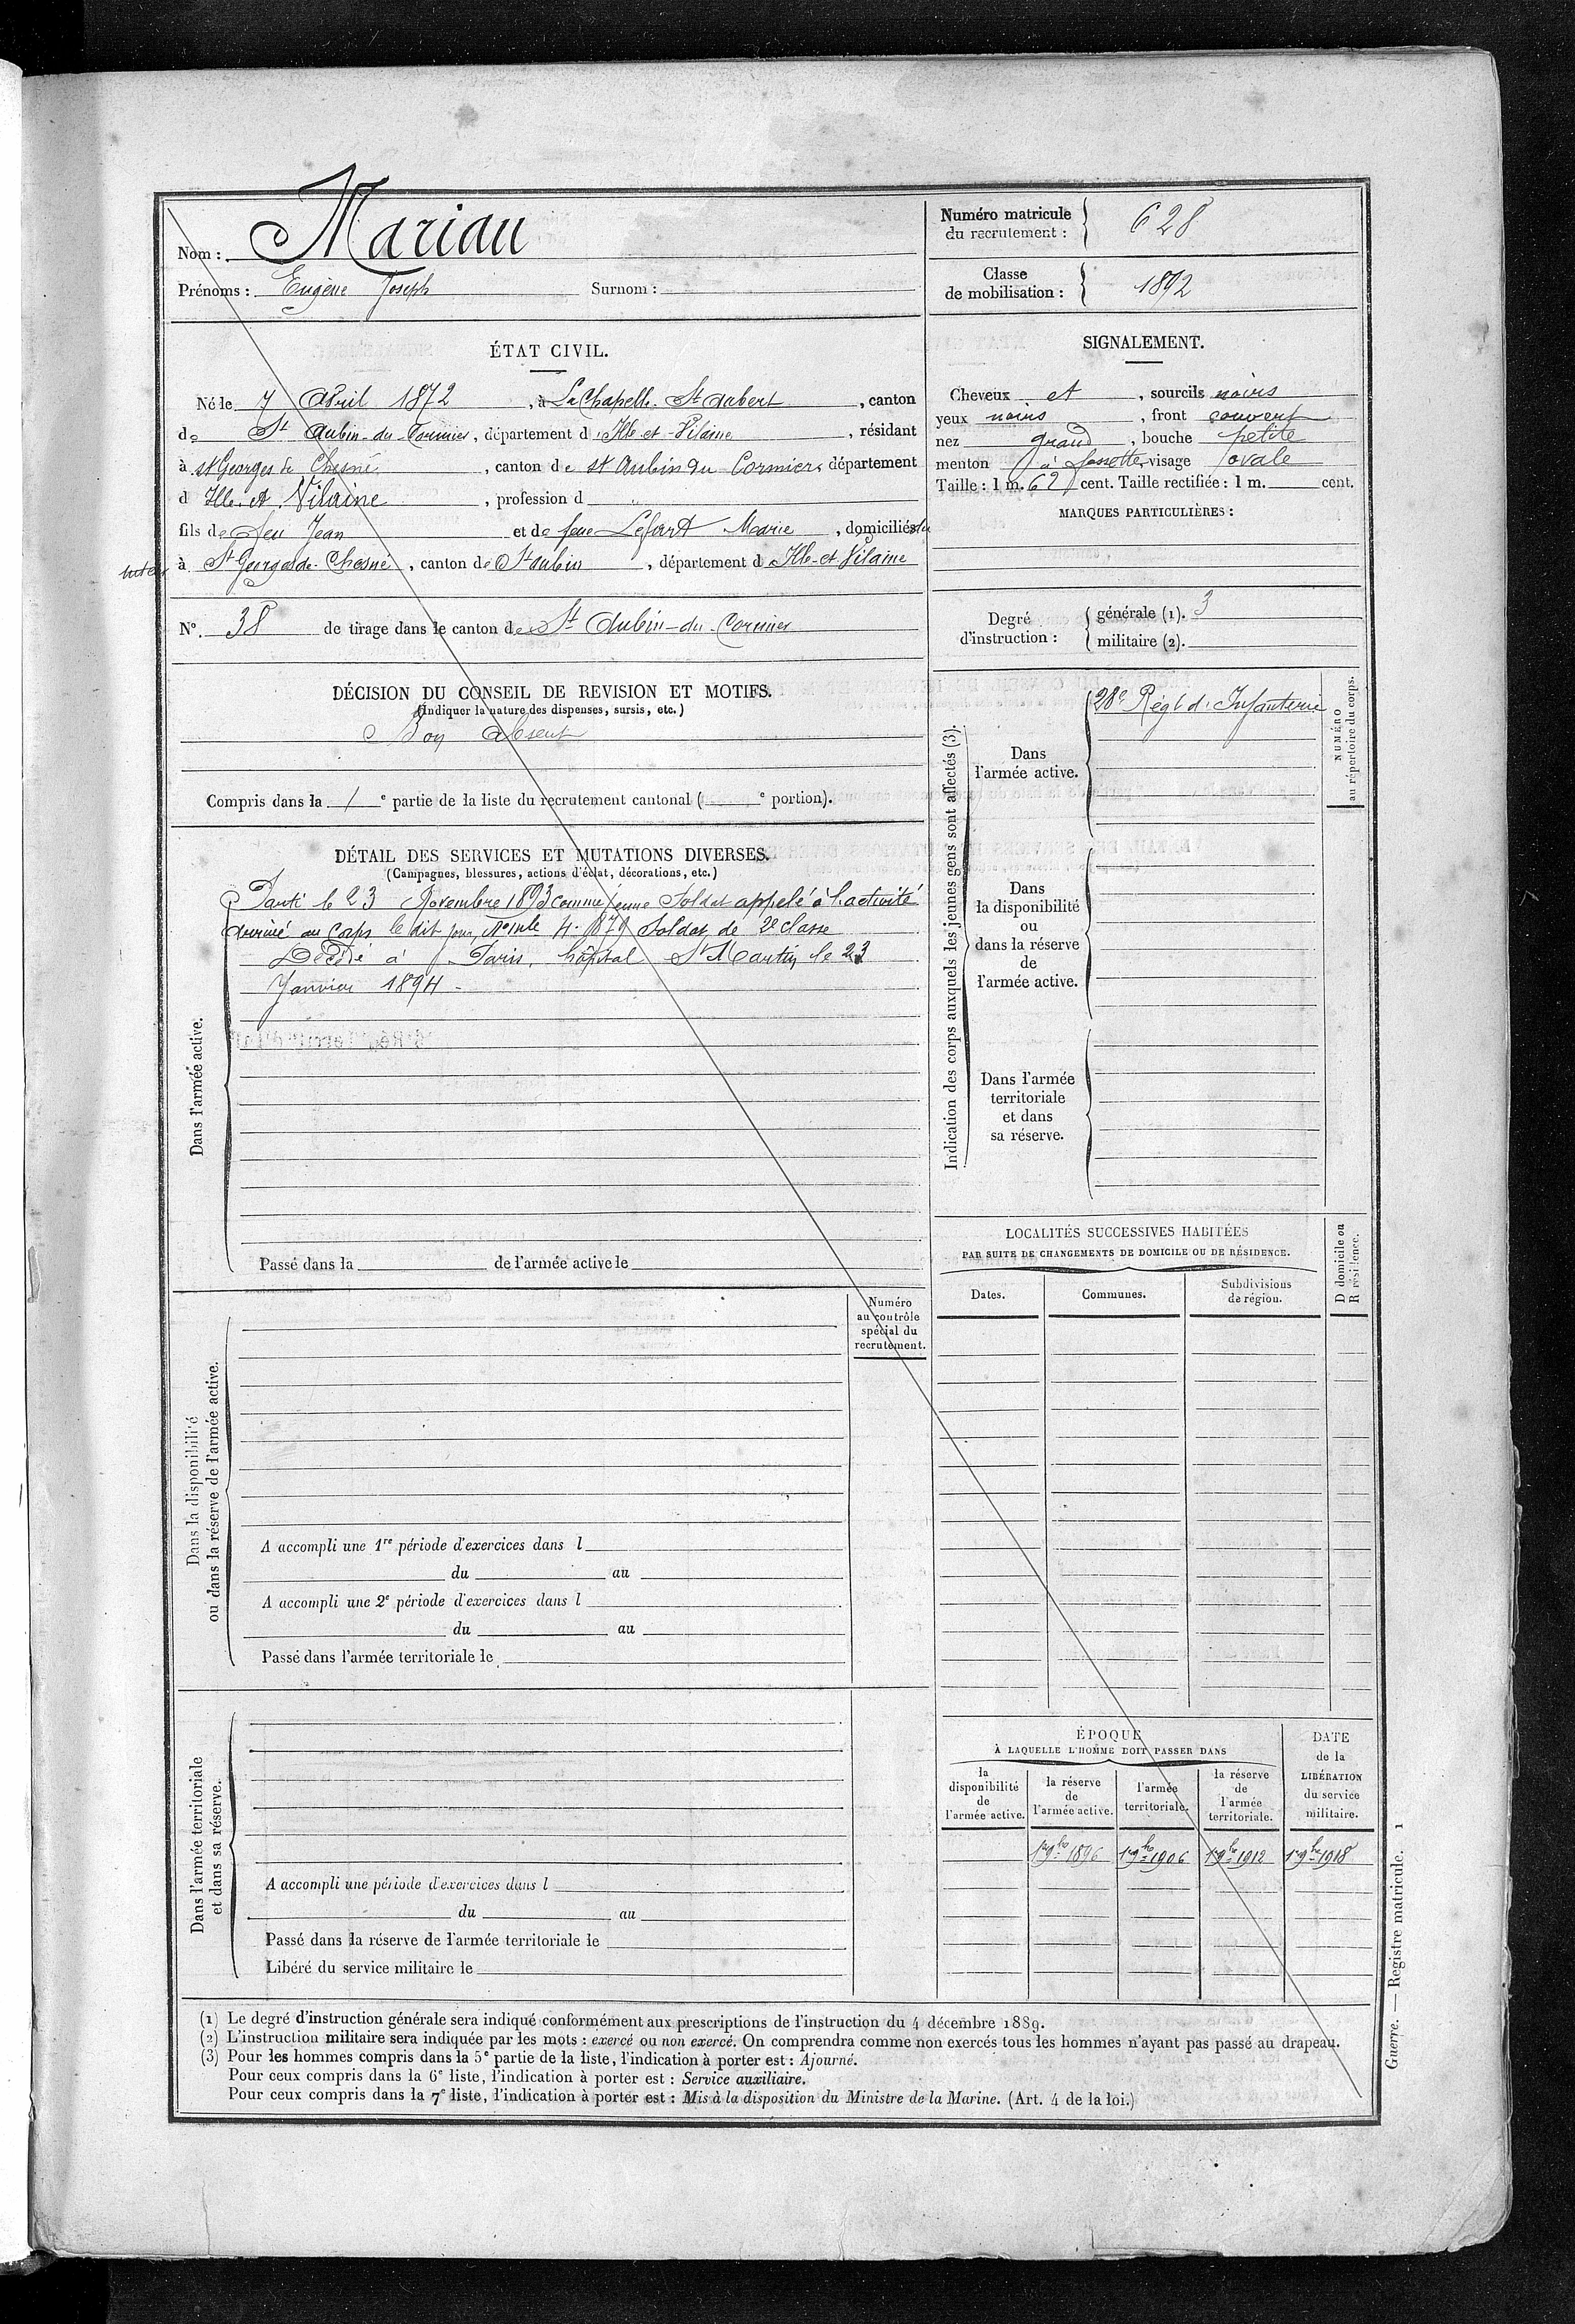 Nom : Mariau
Prénoms : Eugène Joseph Surnom :
Numéro matricule du recrutement : 628
Classe de mobilisation : 1892
ÉTAT CIVIL.
Né le 7 Avril 1872, à La Chapelle-St Aubert, canton
de St Aubin-du-Cormier, département d'Ille-et-Vilaine, résidant
à St Georges de Chesné, canton de St Aubin du Cormier, département
d Ille-et-Vilaine, profession d "
fils de feu Jean et de feue Lefort Marie, domiciliés
à St Georges-de-Chesné, canton de St Aubin, département d Ille-et-Vilaine
N°. 38 de tirage dans le canton de St Aubin-du-Cormier
SIGNALEMENT.
Cheveux et, sourcils noirs
yeux noirs, front couvert
nez grand, bouche petite
menton à fossette, visage ovale
Taille : 1 m. 62 cent. Taille rectifiée : 1 m. cent.
MARQUES PARTICULIÈRES :
Degré d'instruction : générale (1). 3
militaire (2).
DÉCISION DU CONSEIL DE REVISION ET MOTIFS.
(Indiquer la nature des dispenses, sursis, etc.)
Bon Absent
Compris dans la 1e partie de la liste du recrutement cantonal ( e portion).
DÉTAIL DES SERVICES ET MUTATIONS DIVERSES.
(Campagnes, blessures, actions d'éclat, décorations, etc.)
Dans l'armée active.
Parti le 23 Novembre 1893 comme jeune Soldat appelé à l'activité
arrivé au Corps le dit jour, No mle 4.879 Soldat de 2e classe
Décédé à Paris, hôpital St Martin le 23
Janvier 1894 -
Passé dans la de l'armée active le
Indication des corps auxquels les jeunes gens sont affectés (3).
Dans l'armée active.
28e Régt d'Infanterie
NUMÉRO au répertoire du corps.
Dans la disponibilité ou dans la réserve de l'armée active.
Dans l'armée territoriale et dans sa réserve.
LOCALITÉS SUCCESSIVES HABITÉES
PAR SUITE DE CHANGEMENTS DE DOMICILE OU DE RÉSIDENCE.
Dates. Communes. Subdivisions de région.
D domicile ou R résidence.
Numéro au contrôle spécial du recrutement.
Dans la disponibilité ou dans la réserve de l'armée active.
A accompli une 1re période d'exercices dans l
du au
A accompli une 2e période d'exercices dans l
du au
Passé dans l'armée territoriale le
Dans l'armée territoriale et dans sa réserve.
A accompli une période d'exercices dans l
du au
Passé dans la réserve de l'armée territoriale le
Libéré du service militaire le
ÉPOQUE
À LAQUELLE L'HOMME DOIT PASSER DANS
la disponibilité de l'armée active.
la réserve de l'armée active.
l'armée territoriale.
la réserve de l'armée territoriale.
DATE de la LIBÉRATION du service militaire.
1er 9bre 1896 1er 9bre 1906 1er 9bre 1912 1er 9bre 1918
(1) Le degré d'instruction générale sera indiqué conformément aux prescriptions de l'instruction du 4 décembre 1889.
(2) L'instruction militaire sera indiquée par les mots : exercé ou non exercé. On comprendra comme non exercés tous les hommes n'ayant pas passé au drapeau.
(3) Pour les hommes compris dans la 5e partie de la liste, l'indication à porter est : Ajourné.
Pour ceux compris dans la 6e liste, l'indication à porter est : Service auxiliaire.
Pour ceux compris dans la 7e liste, l'indication à porter est : Mis à la disposition du Ministre de la Marine. (Art. 4 de la loi.)
Guerre. — Registre matricule. 1